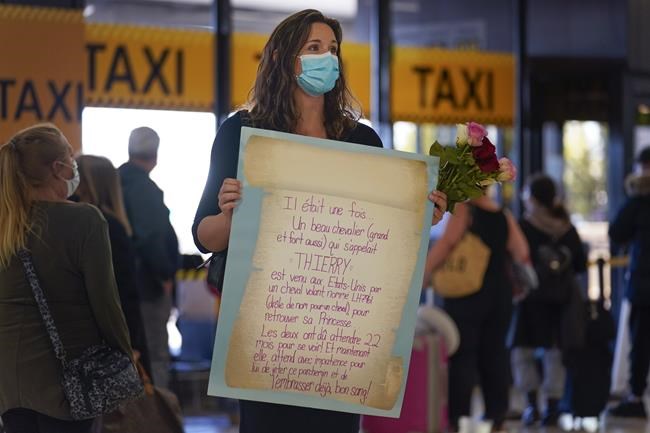 TAXI
TAXI
TAXI
Il était une fois...
Un beau chevalier (grand
et fort aussi) qui s'appelait
"THIERRY"
est venu aux Etats-Unis par
un cheval volant nommé LH7961
(drôle de nom pour un cheval) pour
retrouver sa Princesse
Les deux ont dû attendre 22
mois pour se voir! Et maintenant
elle, attend avec impatience pour
lui de jeter ce parchemin et de
l'embrasser déjà, bon sang!